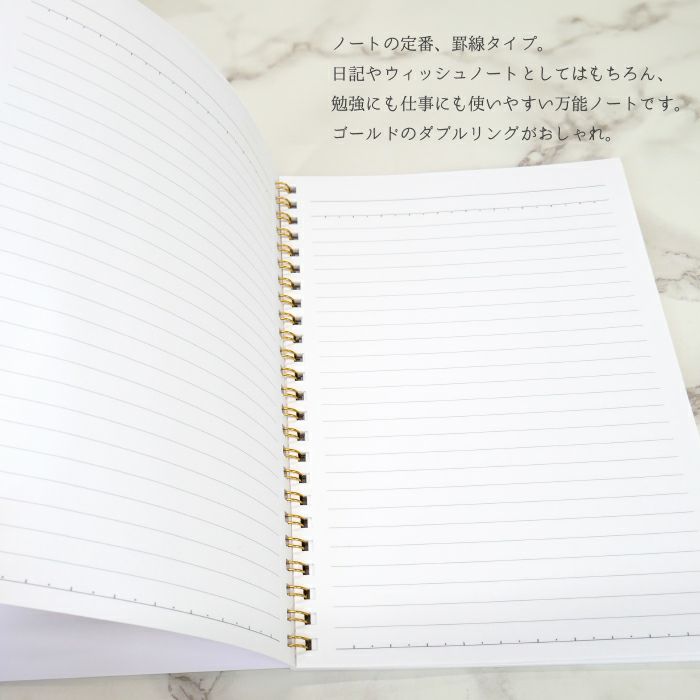 ノートの定番、罫線タイプ。
日記やウィッシュノートとしてはもちろん、
勉強にも仕事にも使いやすい万能ノートです。
ゴールドのダブルリングがおしゃれ。